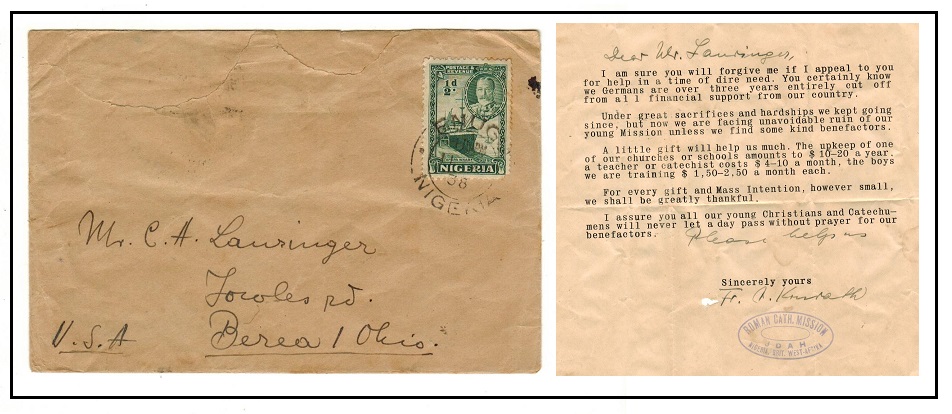 POSTAGE & REVENUE
½d
NIGERIA
38
NIGERIA
Mr. C. A. Lauringer
Fowles rd.
U.S.A Berea / Ohio.
Dear Mr. Lauringer,
I am sure you will forgive me if I appeal to you
for help in a time of dire need. You certainly know
we Germans are over three years entirely cut off
from all financial support from our country.
Under great sacrifices and hardships we kept going
since, but now we are facing unavoidable ruin of our
young Mission unless we find some kind benefactors.
A little gift will help us much. The upkeep of one
of our churches or schools amounts to $ 10-20 a year.
a teacher or catechist costs $ 4-10 a month, the boys
we are training $ 1,50-2,50 a month each.
For every gift and Mass Intention, however small,
we shall be greatly thankful.
I assure you all our young Christians and Catechu-
mens will never let a day pass without prayer for our
benefactors. Please help us
Sincerely yours
Fr.
ROMAN CATH. MISSION
WEST-AFRICA